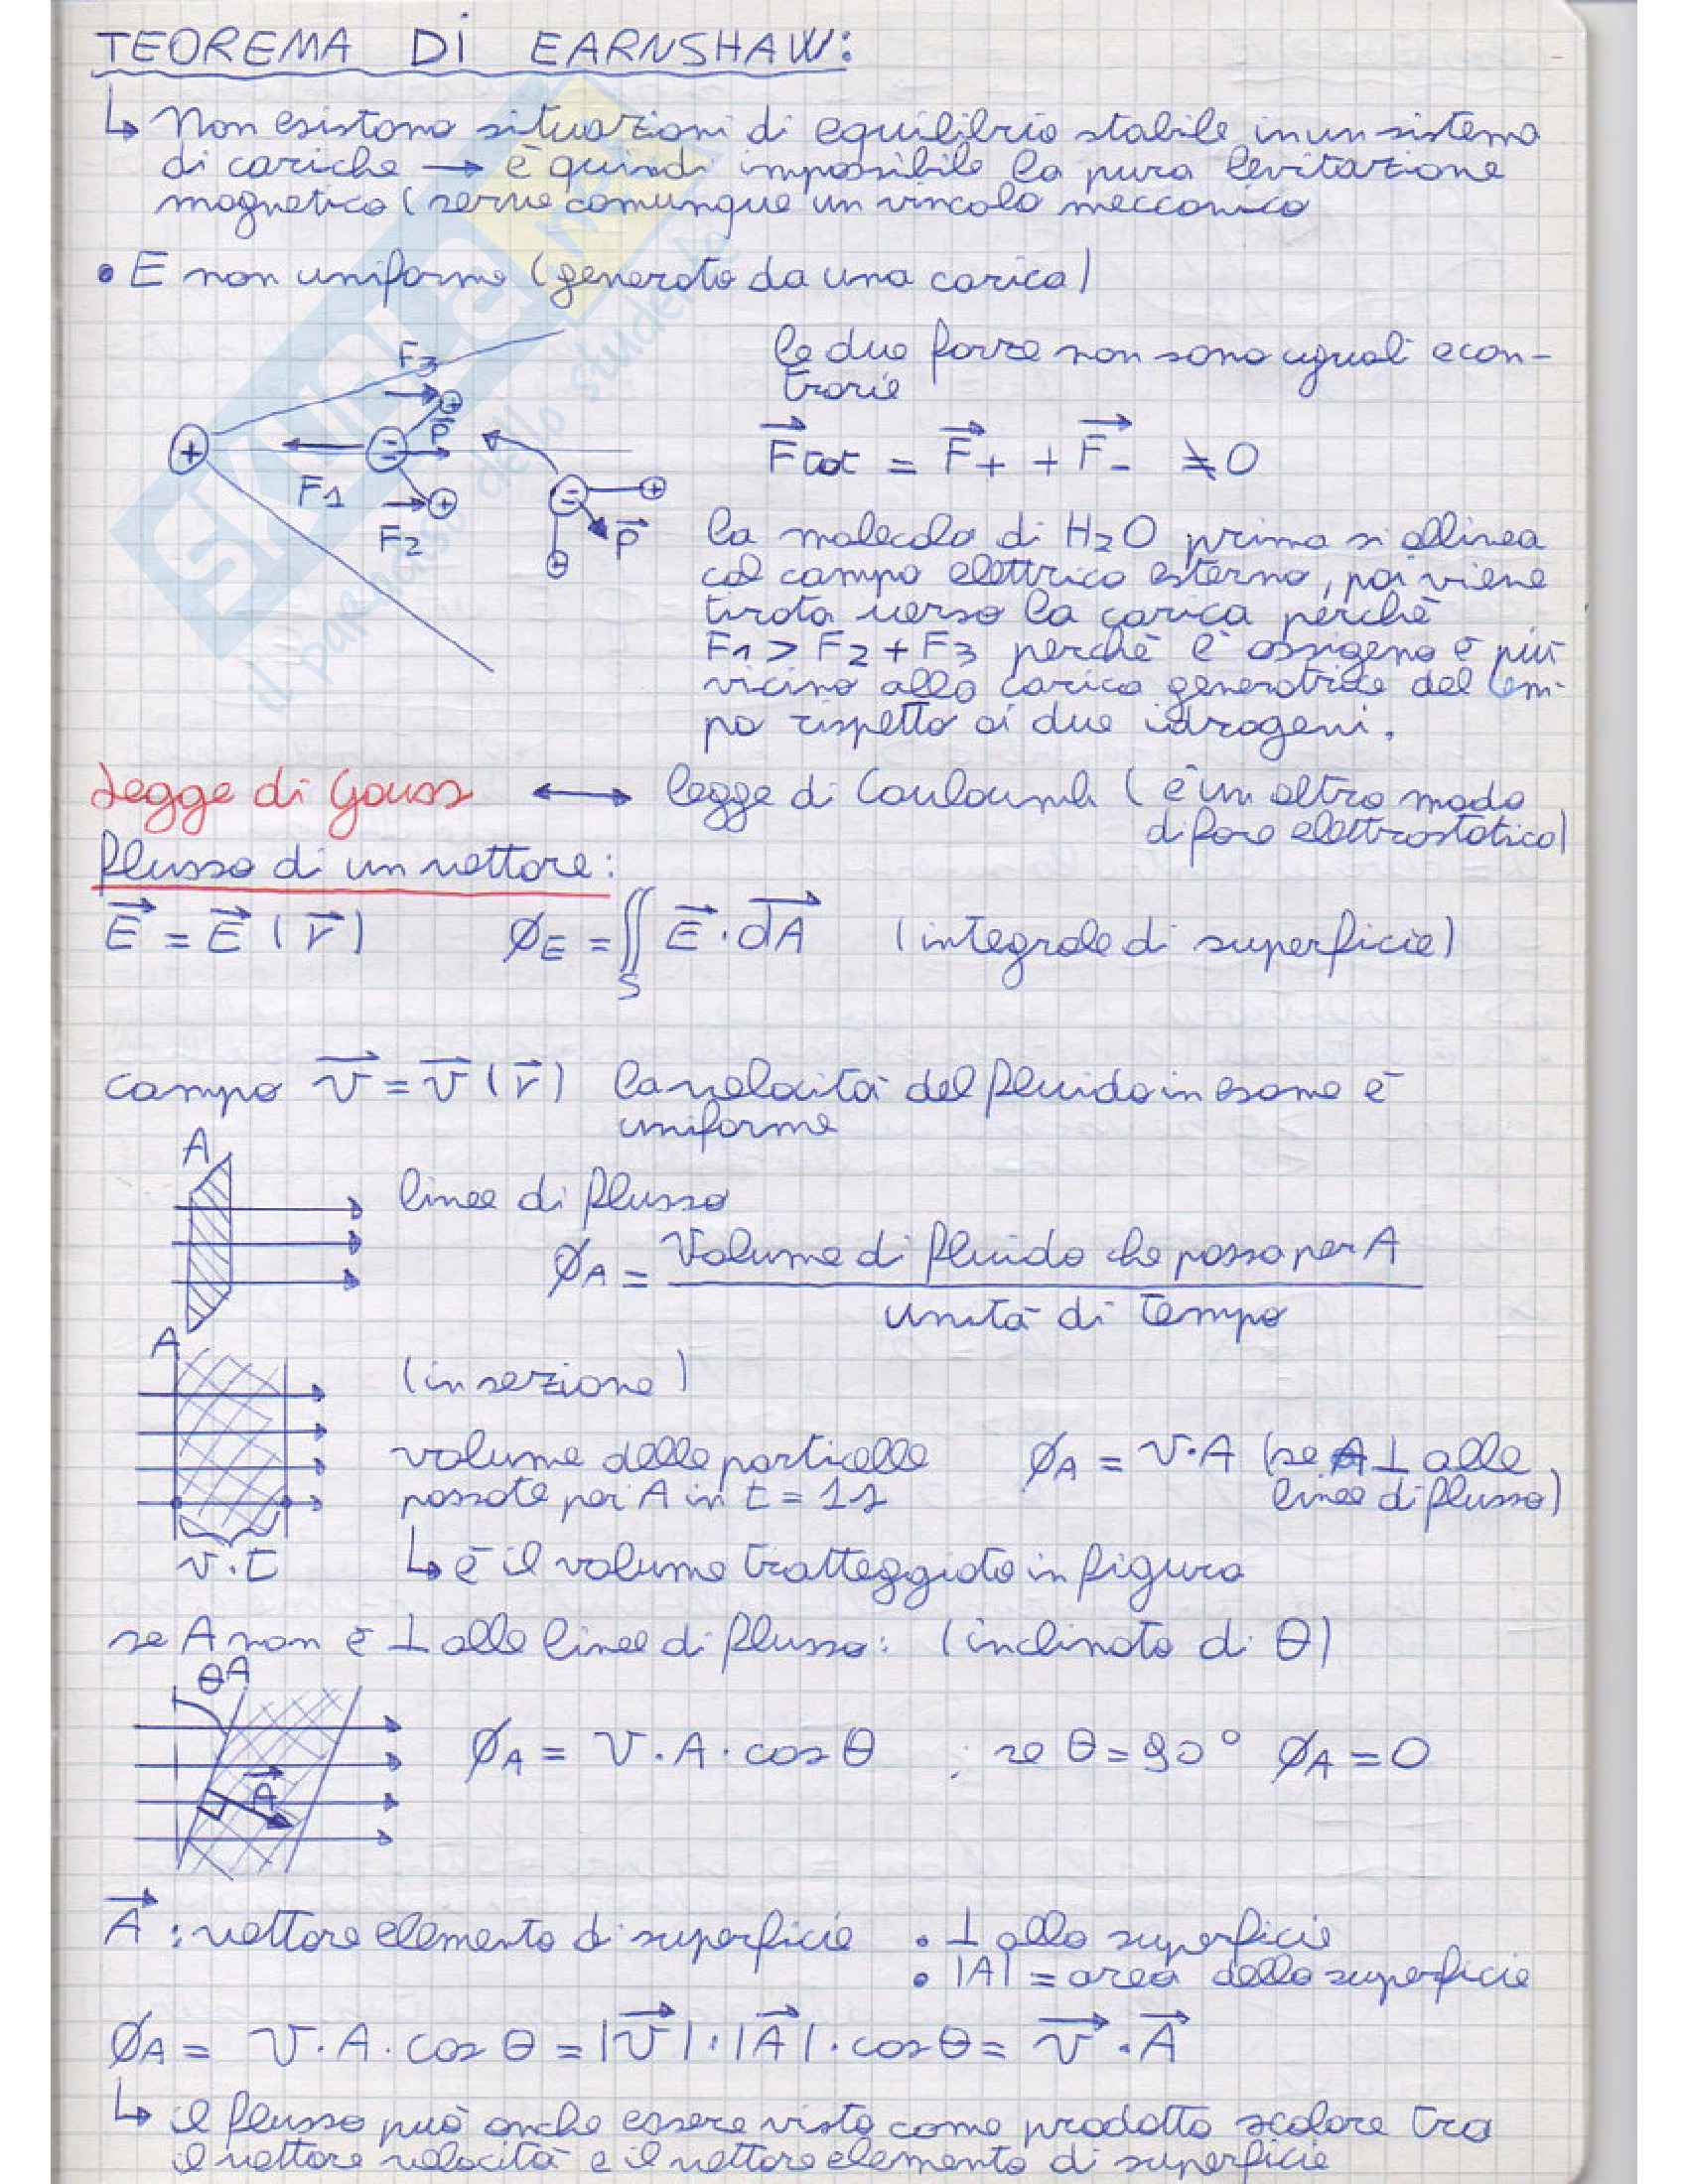 TEOREMA DI EARNSHAW:
↳ Non esistono situazioni di equilibrio stabile in un sistema
di cariche → è quindi impossibile la pura levitazione
magnetica (serve comunque un vincolo meccanico
• E non uniforme (generato da una carica)
le due forze non sono uguali e con-
trarie
F3
+
p⃗
F1
F2
p⃗
F⃗tot = F⃗+ + F⃗- ≠ 0
la molecola di H2O prima si allinea
col campo elettrico esterno, poi viene
tirata verso la carica perchè
F1 > F2 + F3 perchè l'ossigeno è più
vicino alla carica generatrice del cam-
po rispetto ai due idrogeni.
Legge di Gauss ↔ legge di Couloumb (è un altro modo
di fare elettrostatica)
flusso di un vettore:
E⃗ = E⃗ (r⃗) ØE = ∬S E⃗ · dA⃗ (integrale di superficie)
campo v⃗ = v⃗ (r⃗) la velocità del fluido in esame è
uniforme
A
linee di flusso
ØA = Volume di fluido che passa per A
unità di tempo
A
(in sezione)
volume delle particelle ØA = v·A (se A ⊥ alle
passate per A in t = 1s linee di flusso)
v·t ↳ è il volume tratteggiato in figura
se A non è ⊥ alle linee di flusso: (inclinata di θ)
θ A
A⃗
ØA = v · A · cos θ ; se θ = 90° ØA = 0
A⃗ : vettore elemento di superficie • ⊥ alla superficie
• |A| = area della superficie
ØA = v · A · cos θ = |v⃗| · |A⃗| · cos θ = v⃗ · A⃗
↳ il flusso può anche essere visto come prodotto scalare tra
il vettore velocità e il vettore elemento di superficie